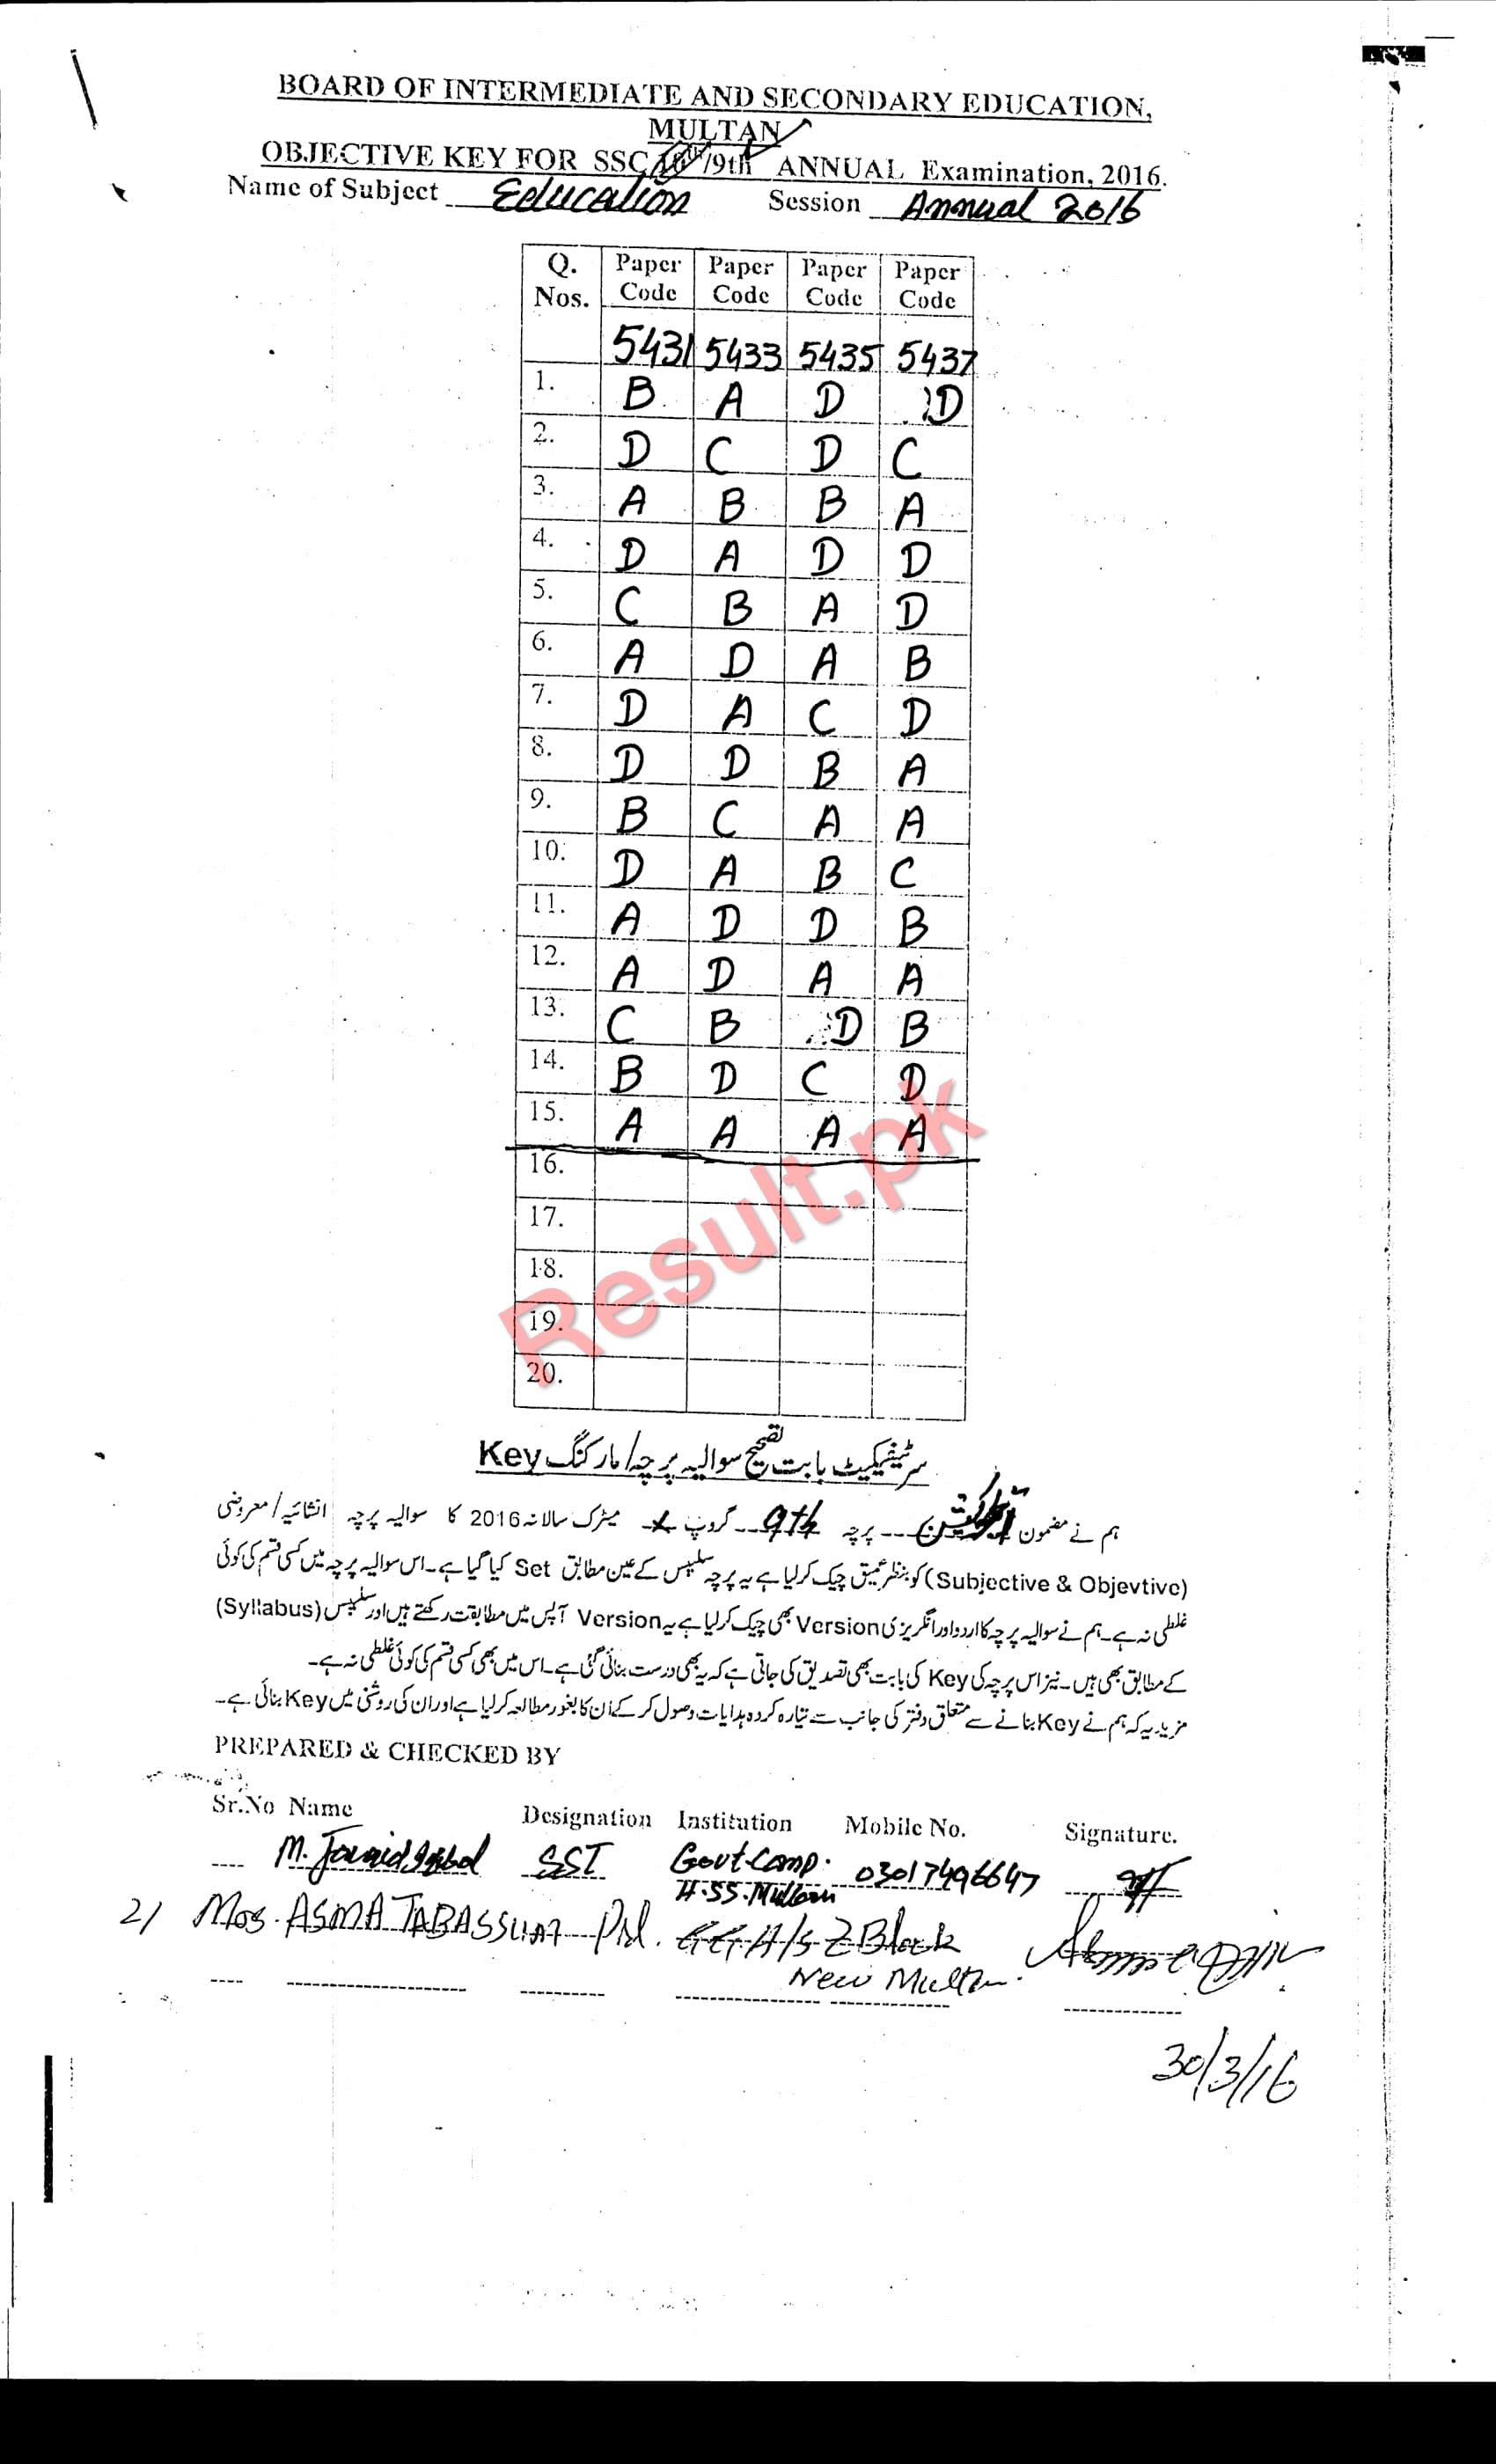 BOARD OF INTERMEDIATE AND SECONDARY EDUCATION,
MULTAN
OBJECTIVE KEY FOR SSC 10th/9th ANNUAL Examination, 2016.
Name of Subject Education Session Annual 2016
Q. Nos. Paper Code Paper Code Paper Code Paper Code
5431 5433 5435 5437
1. B A D D
2. D C D C
3. A B B A
4. D A D D
5. C B A D
6. A D A B
7. D A C D
8. D D B A
9. B C A A
10. D A B C
11. A D D B
12. A D A A
13. C B D B
14. B D C D
15. A A A A
16.
17.
18.
19.
20.
Result.pk
سرٹیفکیٹ بابت تصحیح سوالیہ پرچہ/مارکنگ Key
ہم نے مضمون ایجوکیشن پرچہ 9th گروپ میٹرک سالانہ 2016 کا سوالیہ پرچہ انشائیہ/معروضی
(Subjective & Objevtive) کو بنظر عمیق چیک کرلیا ہے یہ پرچہ سلیبس کے عین مطابق Set کیا گیا ہے۔ اس سوالیہ پرچہ میں کسی قسم کی کوئی
غلطی نہ ہے۔ ہم نے سوالیہ پرچہ کا اردو اور انگریزی Version بھی چیک کرلیا ہے یہ Version آپس میں مطابقت رکھتے ہیں اور سلیبس (Syllabus)
کے مطابق بھی ہیں۔ نیز اس پرچہ کی Key کی بابت بھی تصدیق کی جاتی ہے کہ یہ بھی درست بنائی گئی ہے۔ اس میں بھی کسی قسم کی کوئی غلطی نہ ہے۔
مزید یہ کہ ہم نے Key بنانے سے متعلق دفتر کی جانب سے تیار کردہ ہدایات وصول کرکے ان کا بغور مطالعہ کرلیا ہے اور ان کی روشنی میں Key بنائی ہے۔
PREPARED & CHECKED BY
Sr.No Name Designation Institution Mobile No. Signature.
M. Javaid Iqbal SST Govt Comp. 03017496647
H.SS. Multan
2/ Mrs. ASMA TABASSUM GGH/S Z Block
New Multan.
30/3/16